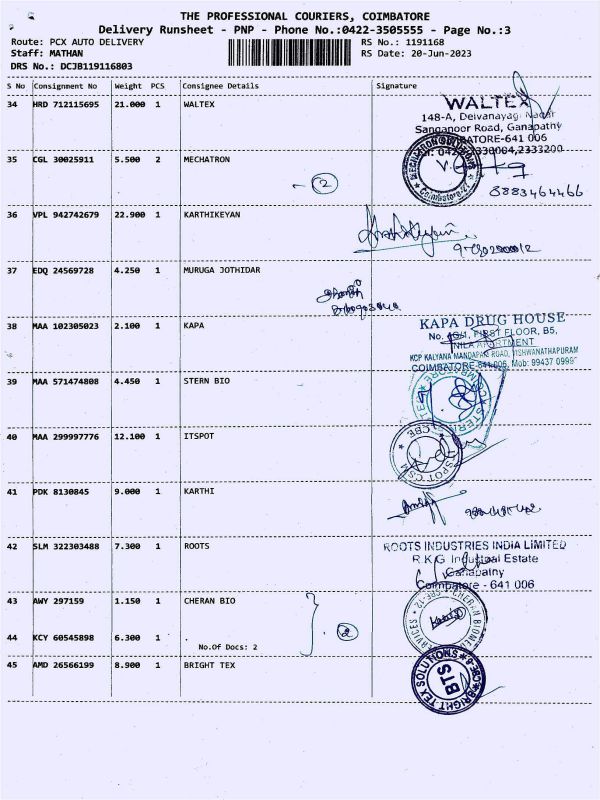 THE PROFESSIONAL COURIERS, COIMBATORE
Delivery Runsheet - PNP - Phone No.:0422-3505555 - Page No.:3
Route: PCX AUTO DELIVERY RS No.: 1191168
Staff: MATHAN RS Date: 20-Jun-2023
DRS No.: DCJB119116803
S No Consignment No Weight PCS Consignee Details Signature
34 HRD 712115695 21.000 1 WALTEX
WALTEX
148-A, Deivanayagi Nagar
Sanganoor Road, Ganapathy
COIMBATORE-641 006
2330004,2333200
35 CGL 30025911 5.500 2 MECHATRON
2
8883464466
36 VPL 942742679 22.900 1 KARTHIKEYAN
37 EDQ 24569728 4.250 1 MURUGA JOTHIDAR
38 MAA 102305023 2.100 1 KAPA
KAPA DRUG HOUSE
FIRST FLOOR, B5,
NILA APARTMENT
KCP KALYANA MANDAPAM ROAD, VISHWANATHAPURAM
COIMBATORE-641 006, Mob: 99437 0999
39 MAA 571474808 4.450 1 STERN BIO
40 MAA 299997776 12.100 1 ITSPOT
ITSPOT CSM
CBE
41 PDK 8130845 9.000 1 KARTHI
42 SLM 322303488 7.300 1 ROOTS
ROOTS INDUSTRIES INDIA LIMITED
R.K.G Industrial Estate
Ganapathy
Coimbatore - 641 006
43 AWY 297159 1.150 1 CHERAN BIO
2
44 KCY 60545898 6.300 1 .
No.Of Docs: 2
45 AMD 26566199 8.900 1 BRIGHT TEX
BRIGHT TEX SOLUTIONS
BTS